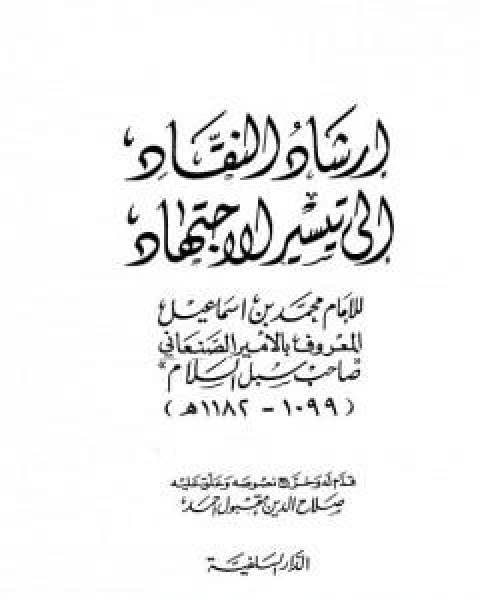 إرشاد النقّاد
إلى تيسير الاجتهاد
للإمام محمد بن اسماعيل
المعروف بالأمير الصنعاني
صاحب سبل السلام
(١٠٩٩ - ١١٨٢ هـ)
قدم له وخرج نصوصه وعلق عليه
صلاح الدين مقبول أحمد
الدار السلفية